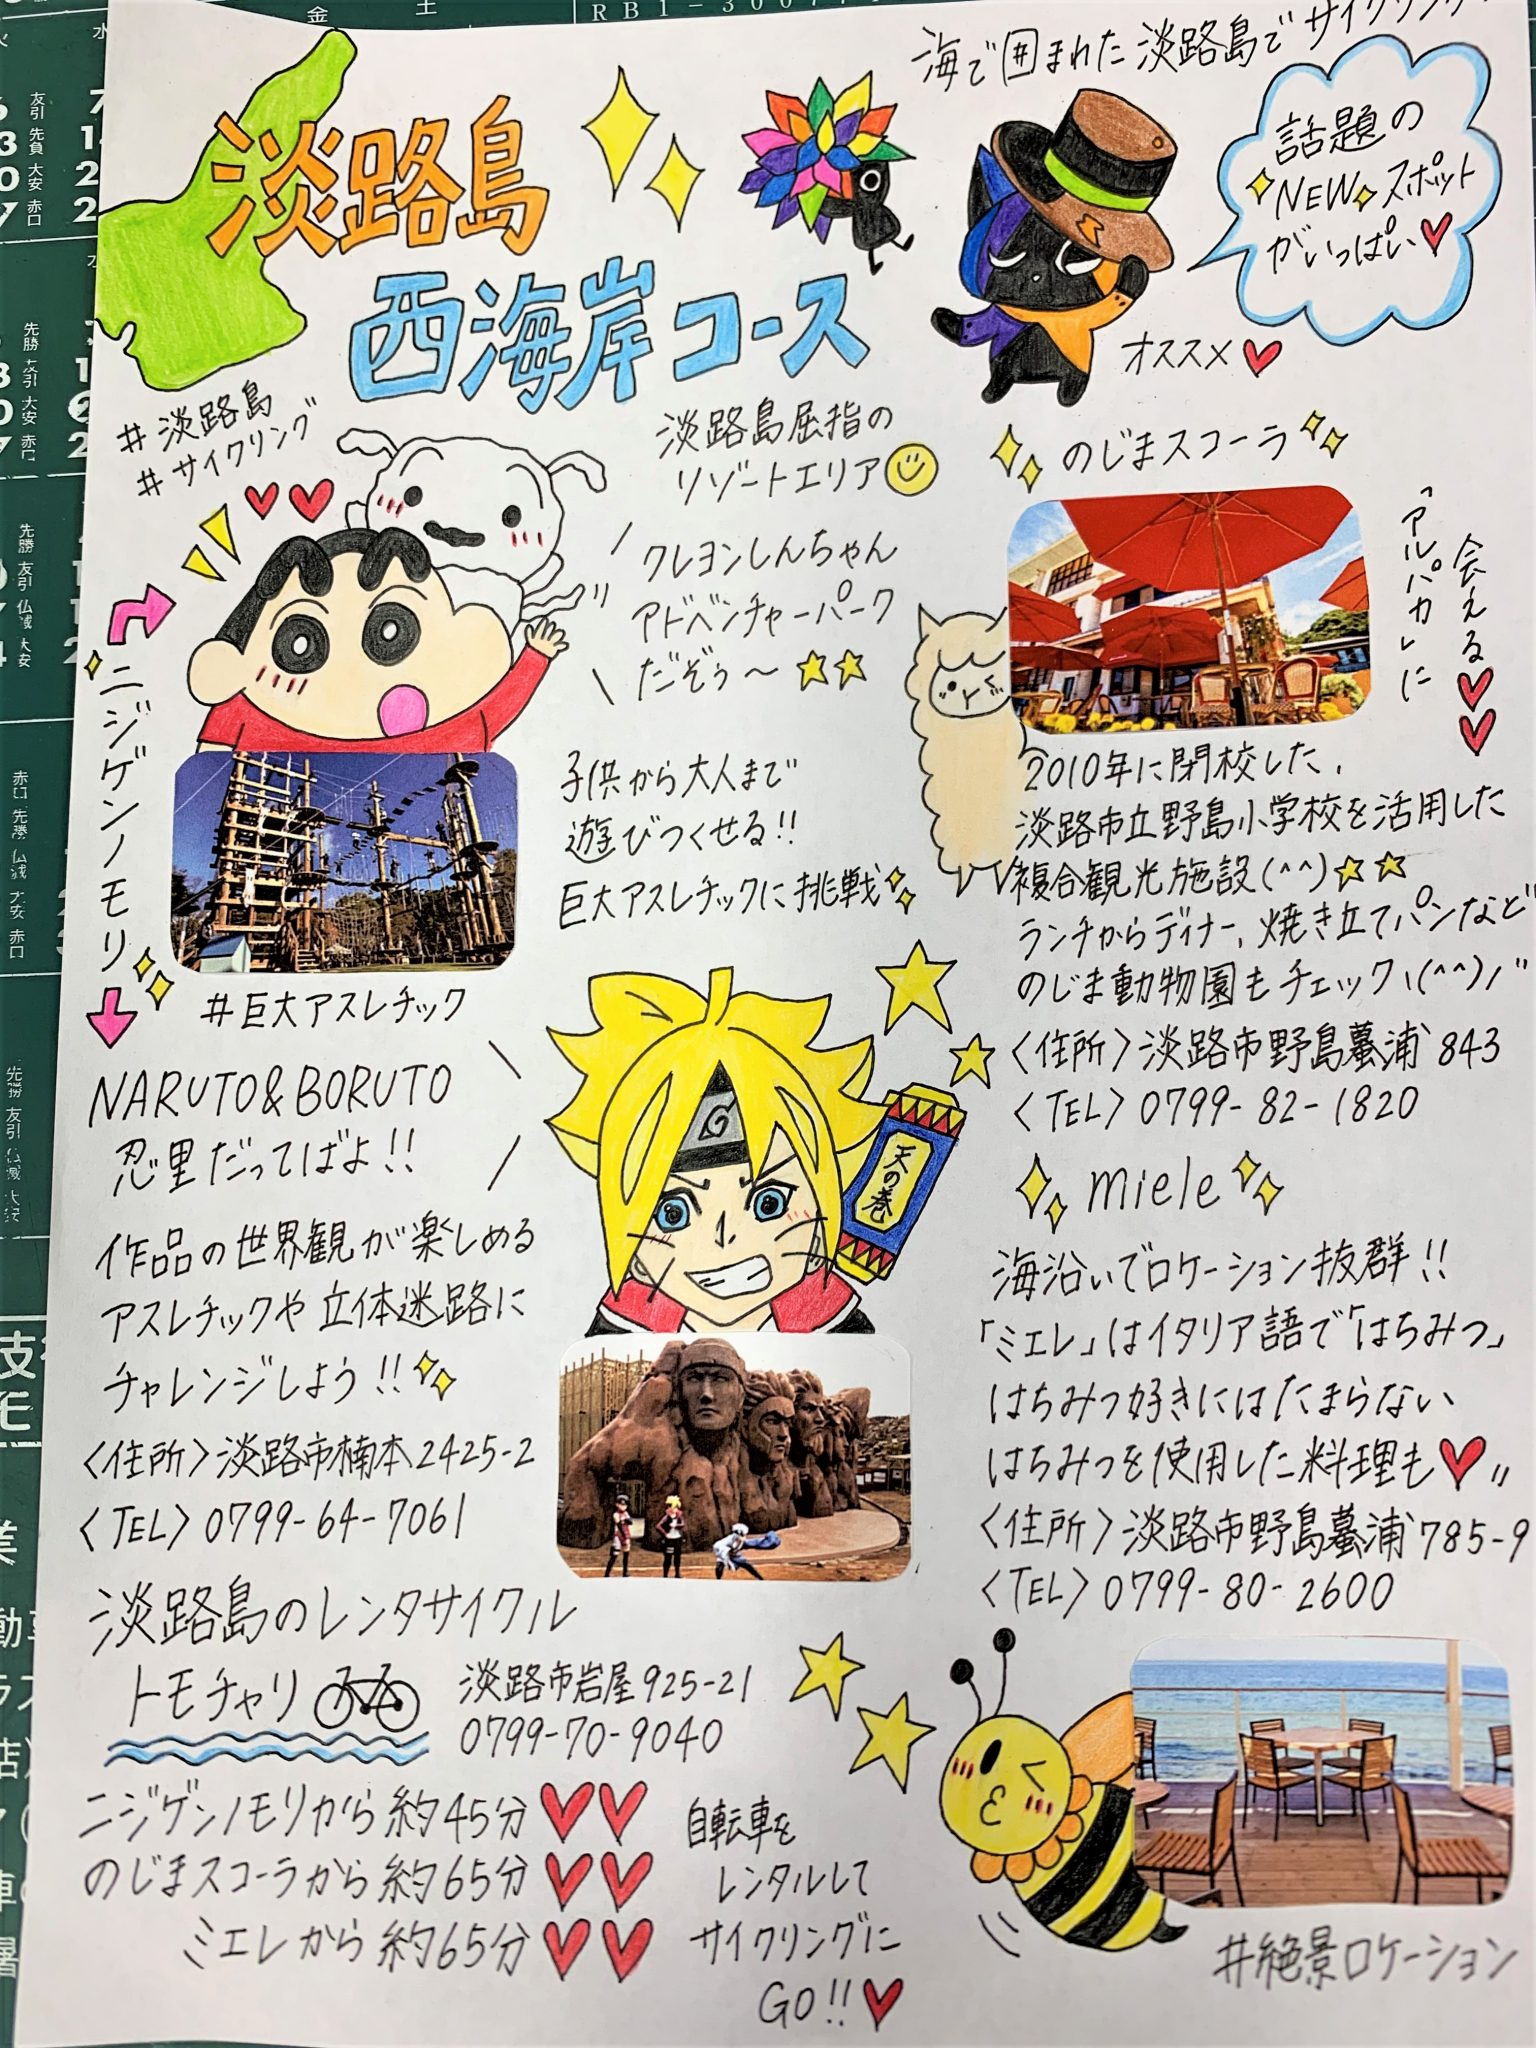 海で囲まれた淡路島でサイクリング
淡路島
西海岸コース
話題の
NEWスポット
がいっぱい
オススメ
#淡路島
#サイクリング
淡路島屈指の
リゾートエリア
クレヨンしんちゃん
アドベンチャーパーク
だぞぅ〜
ニジゲンノモリ
子供から大人まで
遊びつくせる!!
巨大アスレチックに挑戦
#巨大アスレチック
NARUTO&BORUTO
忍里だってばよ!!
天の巻
作品の世界観が楽しめる
アスレチックや立体迷路に
チャレンジしよう!!
〈住所〉淡路市楠本2425-2
〈TEL〉0799-64-7061
のじまスコーラ
「アルパカ」に
会える
2010年に閉校した、
淡路市立野島小学校を活用した
複合観光施設(^^)
ランチからディナー、焼き立てパンなど
のじま動物園もチェック\(^^)/
〈住所〉淡路市野島蟇浦843
〈TEL〉0799-82-1820
miele
海沿いでロケーション抜群!!
「ミエレ」はイタリア語で「はちみつ」
はちみつ好きにはたまらない
はちみつを使用した料理も
〈住所〉淡路市野島蟇浦785-9
〈TEL〉0799-80-2600
#絶景ロケーション
淡路島のレンタサイクル
トモチャリ
淡路市岩屋925-21
0799-70-9040
ニジゲンノモリから約45分
のじまスコーラから約65分
ミエレから約65分
自転車を
レンタルして
サイクリングに
GO!!